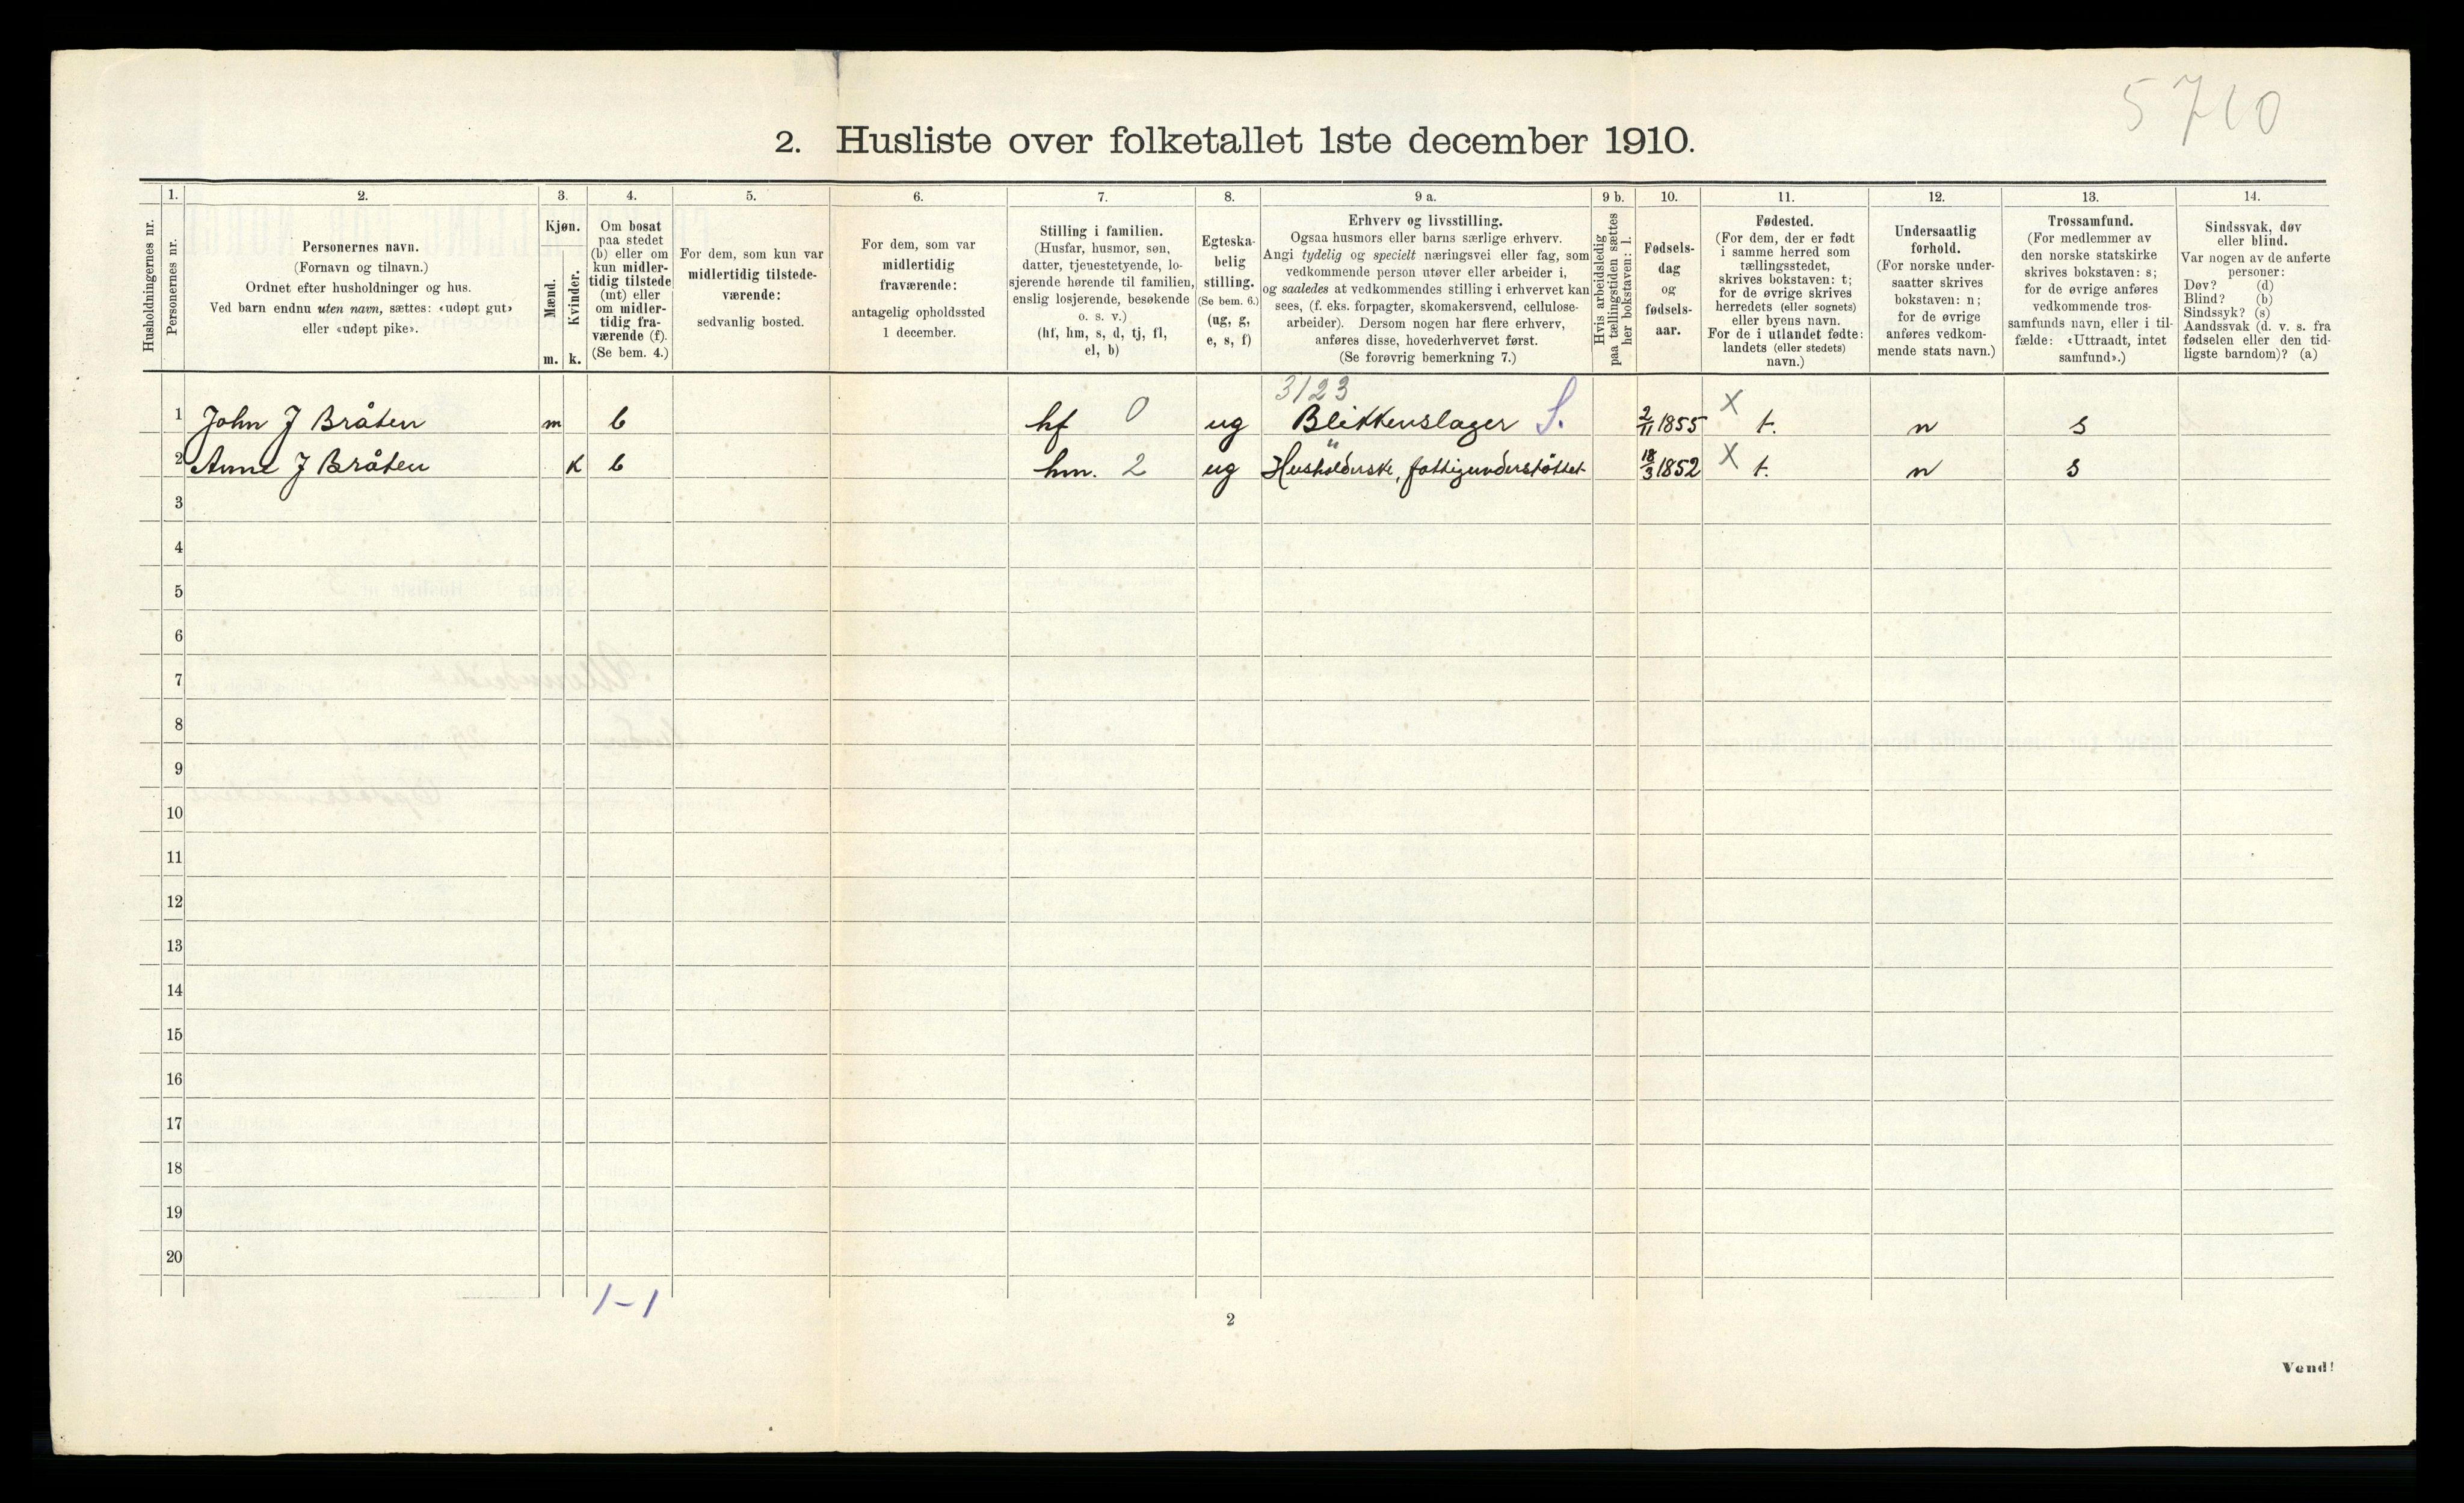 5710
2. Husliste over folketallet 1ste december 1910.
Husholdningernes nr.
1.
Personernes nr.
2.
Personernes navn.
(Fornavn og tilnavn.)
Ordnet efter husholdninger og hus.
Ved barn endnu uten navn, sættes: «udøpt gut»
eller «udøpt pike».
3.
Kjøn.
Mænd.
Kvinder.
m. k.
4.
Om bosat
paa stedet
(b) eller om
kun midler-
tidig tilstede
(mt) eller
om midler-
tidig fra-
værende (f).
(Se bem. 4.)
5.
For dem, som kun var
midlertidig tilstede-
værende:
sedvanlig bosted.
6.
For dem, som var
midlertidig
fraværende:
antagelig opholdssted
1 december.
7.
Stilling i familien.
(Husfar, husmor, søn,
datter, tjenestetyende, lo-
sjerende hørende til familien,
enslig losjerende, besøkende
o. s. v.)
(hf, hm, s, d, tj, fl,
el, b)
8.
Egteska-
belig
stilling.
(Se bem. 6.)
(ug, g,
e, s, f)
9 a.
Erhverv og livsstilling.
Ogsaa husmors eller barns særlige erhverv.
Angi tydelig og specielt næringsvei eller fag, som
vedkommende person utøver eller arbeider i,
og saaledes at vedkommendes stilling i erhvervet kan
sees, (f. eks. forpagter, skomakersvend, cellulose-
arbeider). Dersom nogen har flere erhverv,
anføres disse, hovederhvervet først.
(Se forøvrig bemerkning 7.)
9 b.
Hvis arbeidsledig
paa tællingstiden sættes
her bokstaven: l.
10.
Fødsels-
dag
og
fødsels-
aar.
11.
Fødested.
(For dem, der er født
i samme herred som
tællingsstedet,
skrives bokstaven: t;
for de øvrige skrives
herredets (eller sognets)
eller byens navn.
For de i utlandet fødte:
landets (eller stedets)
navn.)
12.
Undersaatlig
forhold.
(For norske under-
saatter skrives
bokstaven: n;
for de øvrige
anføres vedkom-
mende stats navn.)
13.
Trossamfund.
(For medlemmer av
den norske statskirke
skrives bokstaven: s;
for de øvrige anføres
vedkommende tros-
samfunds navn, eller i til-
fælde: «Uttraadt, intet
samfund».)
14.
Sindssvak, døv
eller blind.
Var nogen av de anførte
personer:
Døv? (d)
Blind? (b)
Sindssyk? (s)
Aandssvak (d. v. s. fra
fødselen eller den tid-
ligste barndom)? (a)
3123
1 John J Bråten m b hf 0 ug Blikkenslager S. 2/11 1855 X t. n s
2 Anne J Bråten k b hm. 2 ug Husholderske, fattigunderstøttet 18/3 1852 X t. n s
3
4
5
6
7
8
9
10
11
12
13
14
15
16
17
18
19
20
1-1
2
Vend!